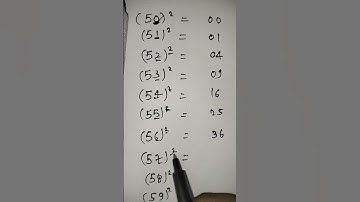 (50)² = 00
(51)² = 01
(52)² = 04
(53)² = 09
(54)² = 16
(55)² = 25
(56)² = 36
(57)² =
(58)²
(59)²